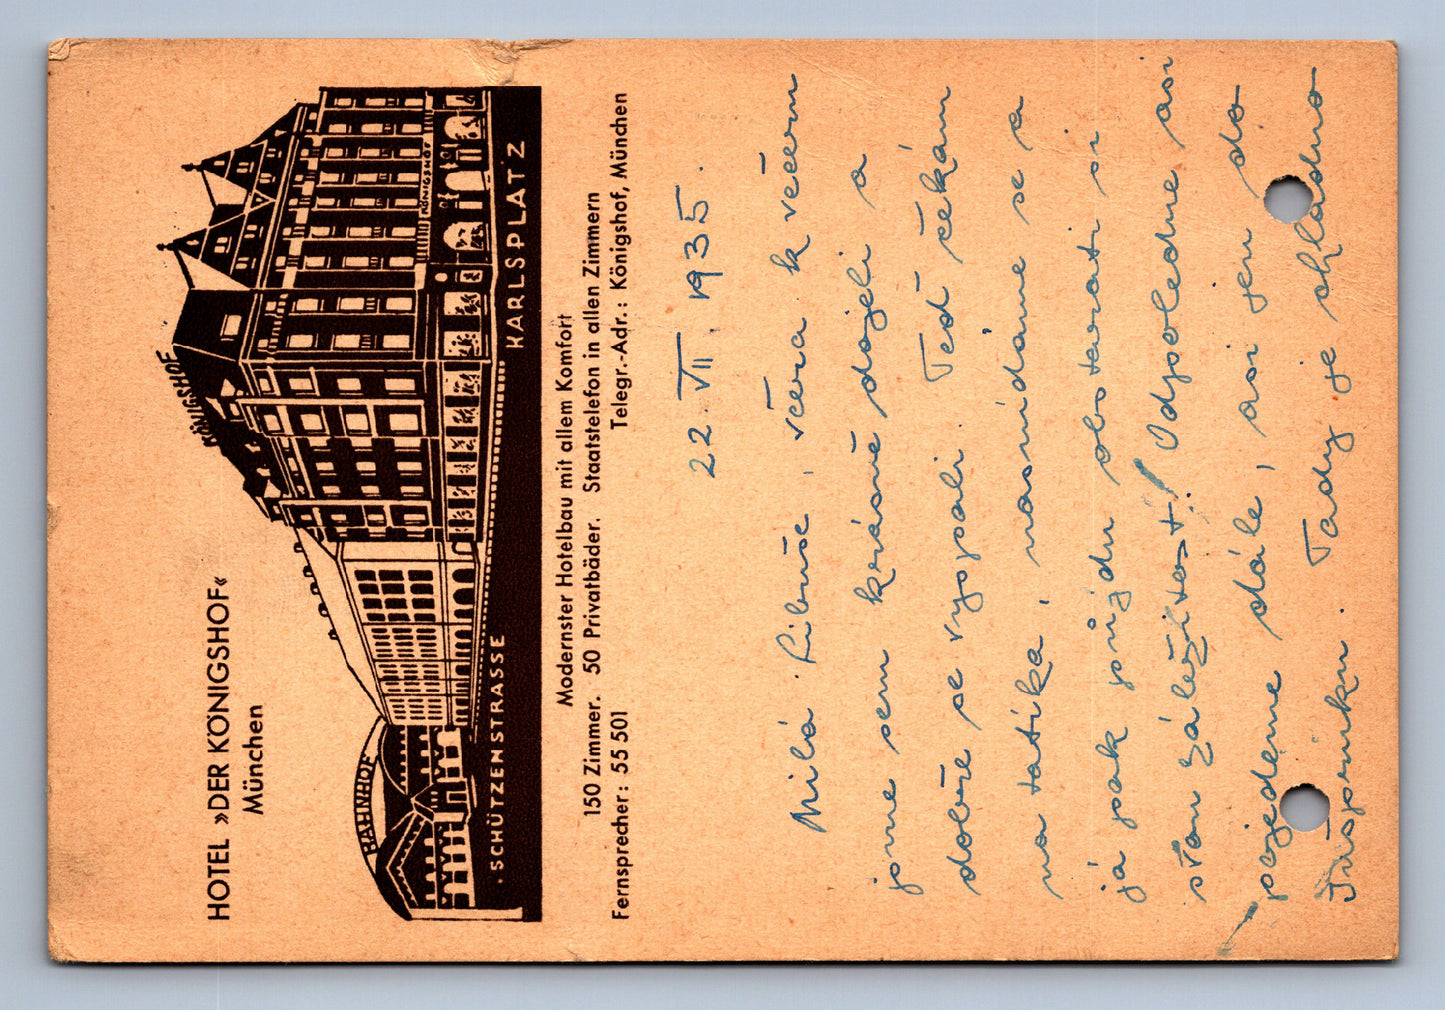 HOTEL »DER KÖNIGSHOF«
München
KÖNIGSHOF
KÖNIGSHOF
BAHNHOF
SCHÜTZENSTRASSE
KARLSPLATZ
Modernster Hotelbau mit allem Komfort
150 Zimmer. 50 Privatbäder. Staatstelefon in allen Zimmern
Fernsprecher: 55 501 Telegr.-Adr.: Königshof, München
22. VII. 1935.
Milá Libuše, včera k večeru
jsme sem krásně dojeli a
dobře se vyspali. Teď čekám
na tatíka, nasnídáme se a
já pak půjdu obstarati si
tu záležitost! Odpoledne asi
pojedeme dále, asi jen do
Inšpruku. Tady je chladno